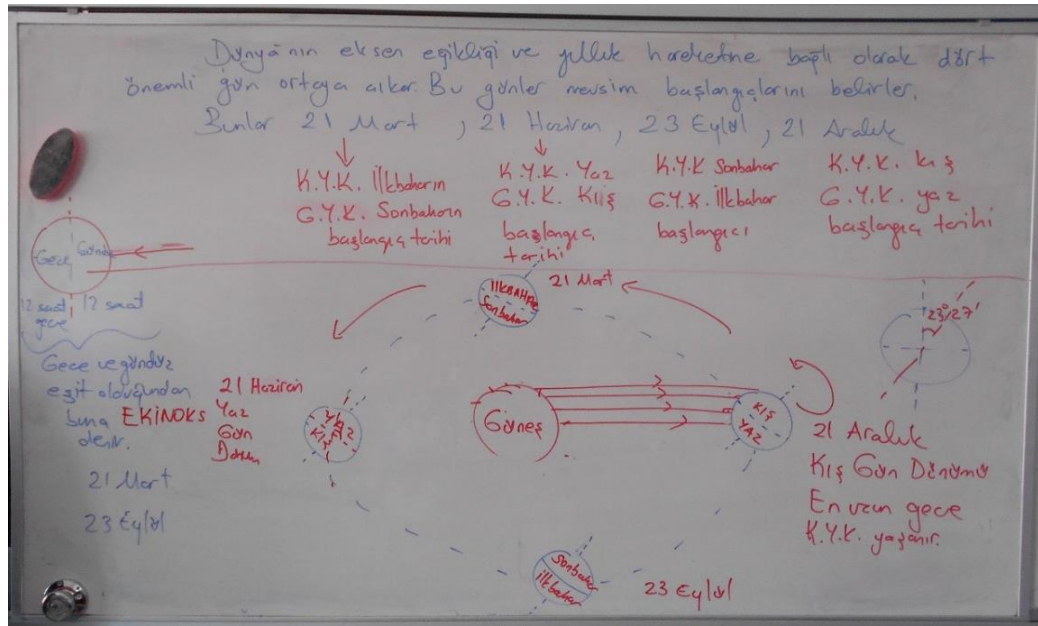 Dünya'nın eksen eğikliği ve yıllık hareketine bağlı olarak dört
önemli gün ortaya çıkar. Bu günler mevsim başlangıçlarını belirler.
Bunlar 21 Mart , 21 Haziran , 23 Eylül , 21 Aralık
K.Y.K. İlkbaharın
G.Y.K. Sonbaharın
başlangıç tarihi
K.Y.K. Yaz
G.Y.K. Kış
başlangıç
tarihi
K.Y.K Sonbahar
G.Y.K. İlkbahar
başlangıcı
K.Y.K. kış
G.Y.K. yaz
başlangıç tarihi
Gece Gündüz
12 saat 12 saat
gece
Gece ve gündüz
eşit olduğundan
buna EKİNOKS
denir.
21 Mart
23 Eylül
İLKBAHAR
Sonbahar
21 Mart
21 Haziran
Yaz
Gün
YAZ
KIŞ
Güneş
KIŞ
YAZ
23° 27'
21 Aralık
Kış Gün Dönümü
En uzun gece
K.Y.K. yaşanır.
Sonbahar
ilkbahar
23 Eylül